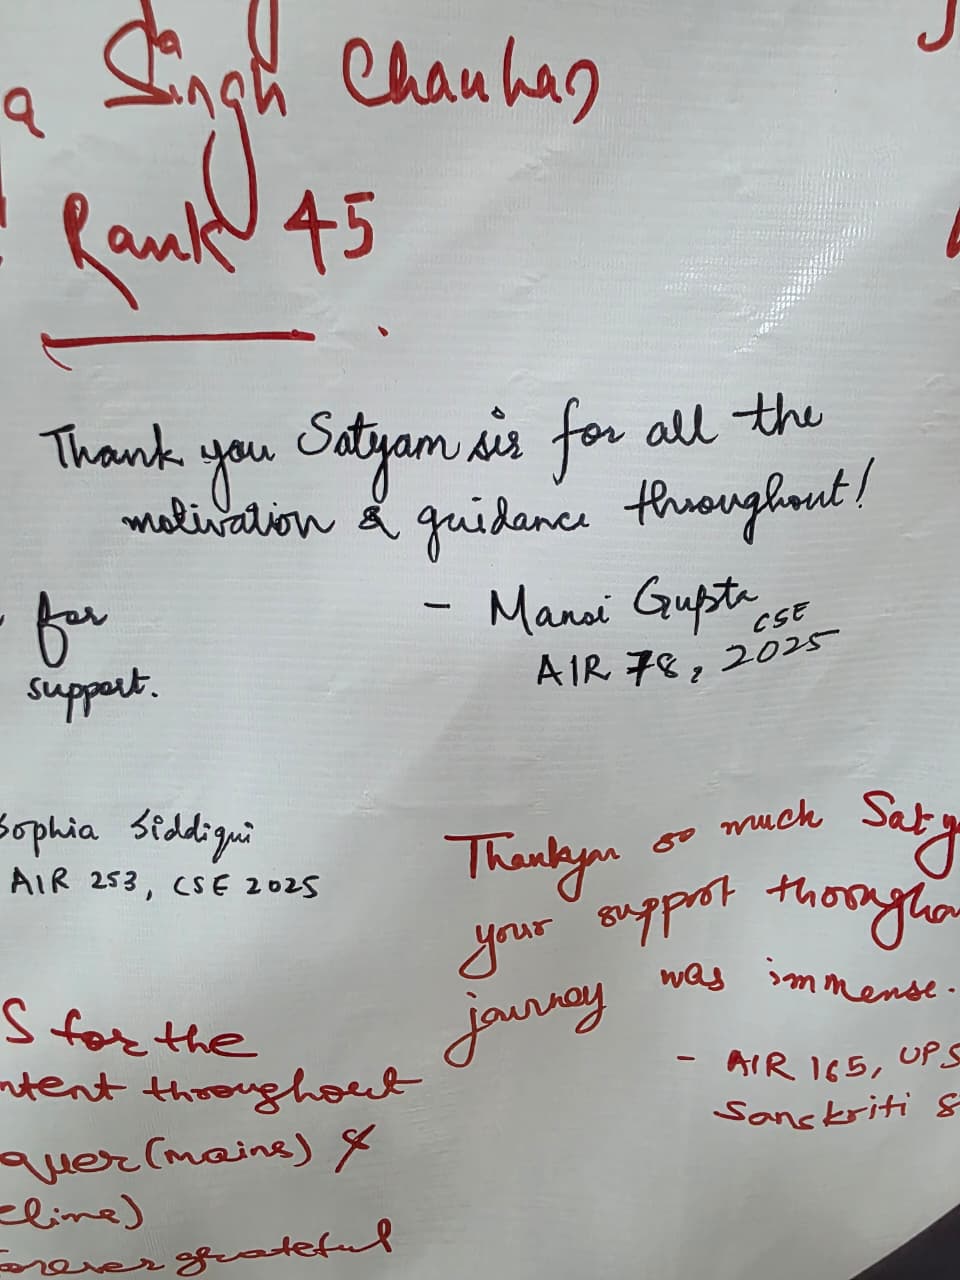 a Singh Chauhan
Rank 45
Thank you Satyam sir for all the
motivation & guidance throughout!
- Mansi Gupta
AIR 78, CSE 2025
for
support.
Sophia Siddiqui
AIR 253, CSE 2025
Thankyou so much Saty
your support throughou
journey was immense.
- AIR 165, UPS
Sanskriti S
S for the
ntent throughout
quer (mains) &
elime)
forever grateful